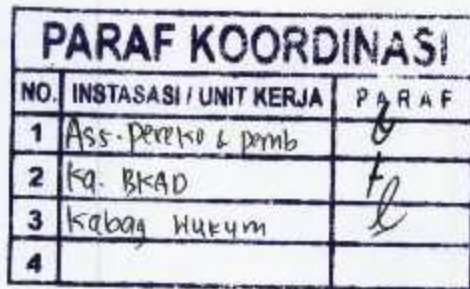 PARAF KOORDINASI
NO. INSTASASI / UNIT KERJA PARAF
1 Ass. pereko & pemb
2 Ka. BKAD
3 Kabag Hukum
4